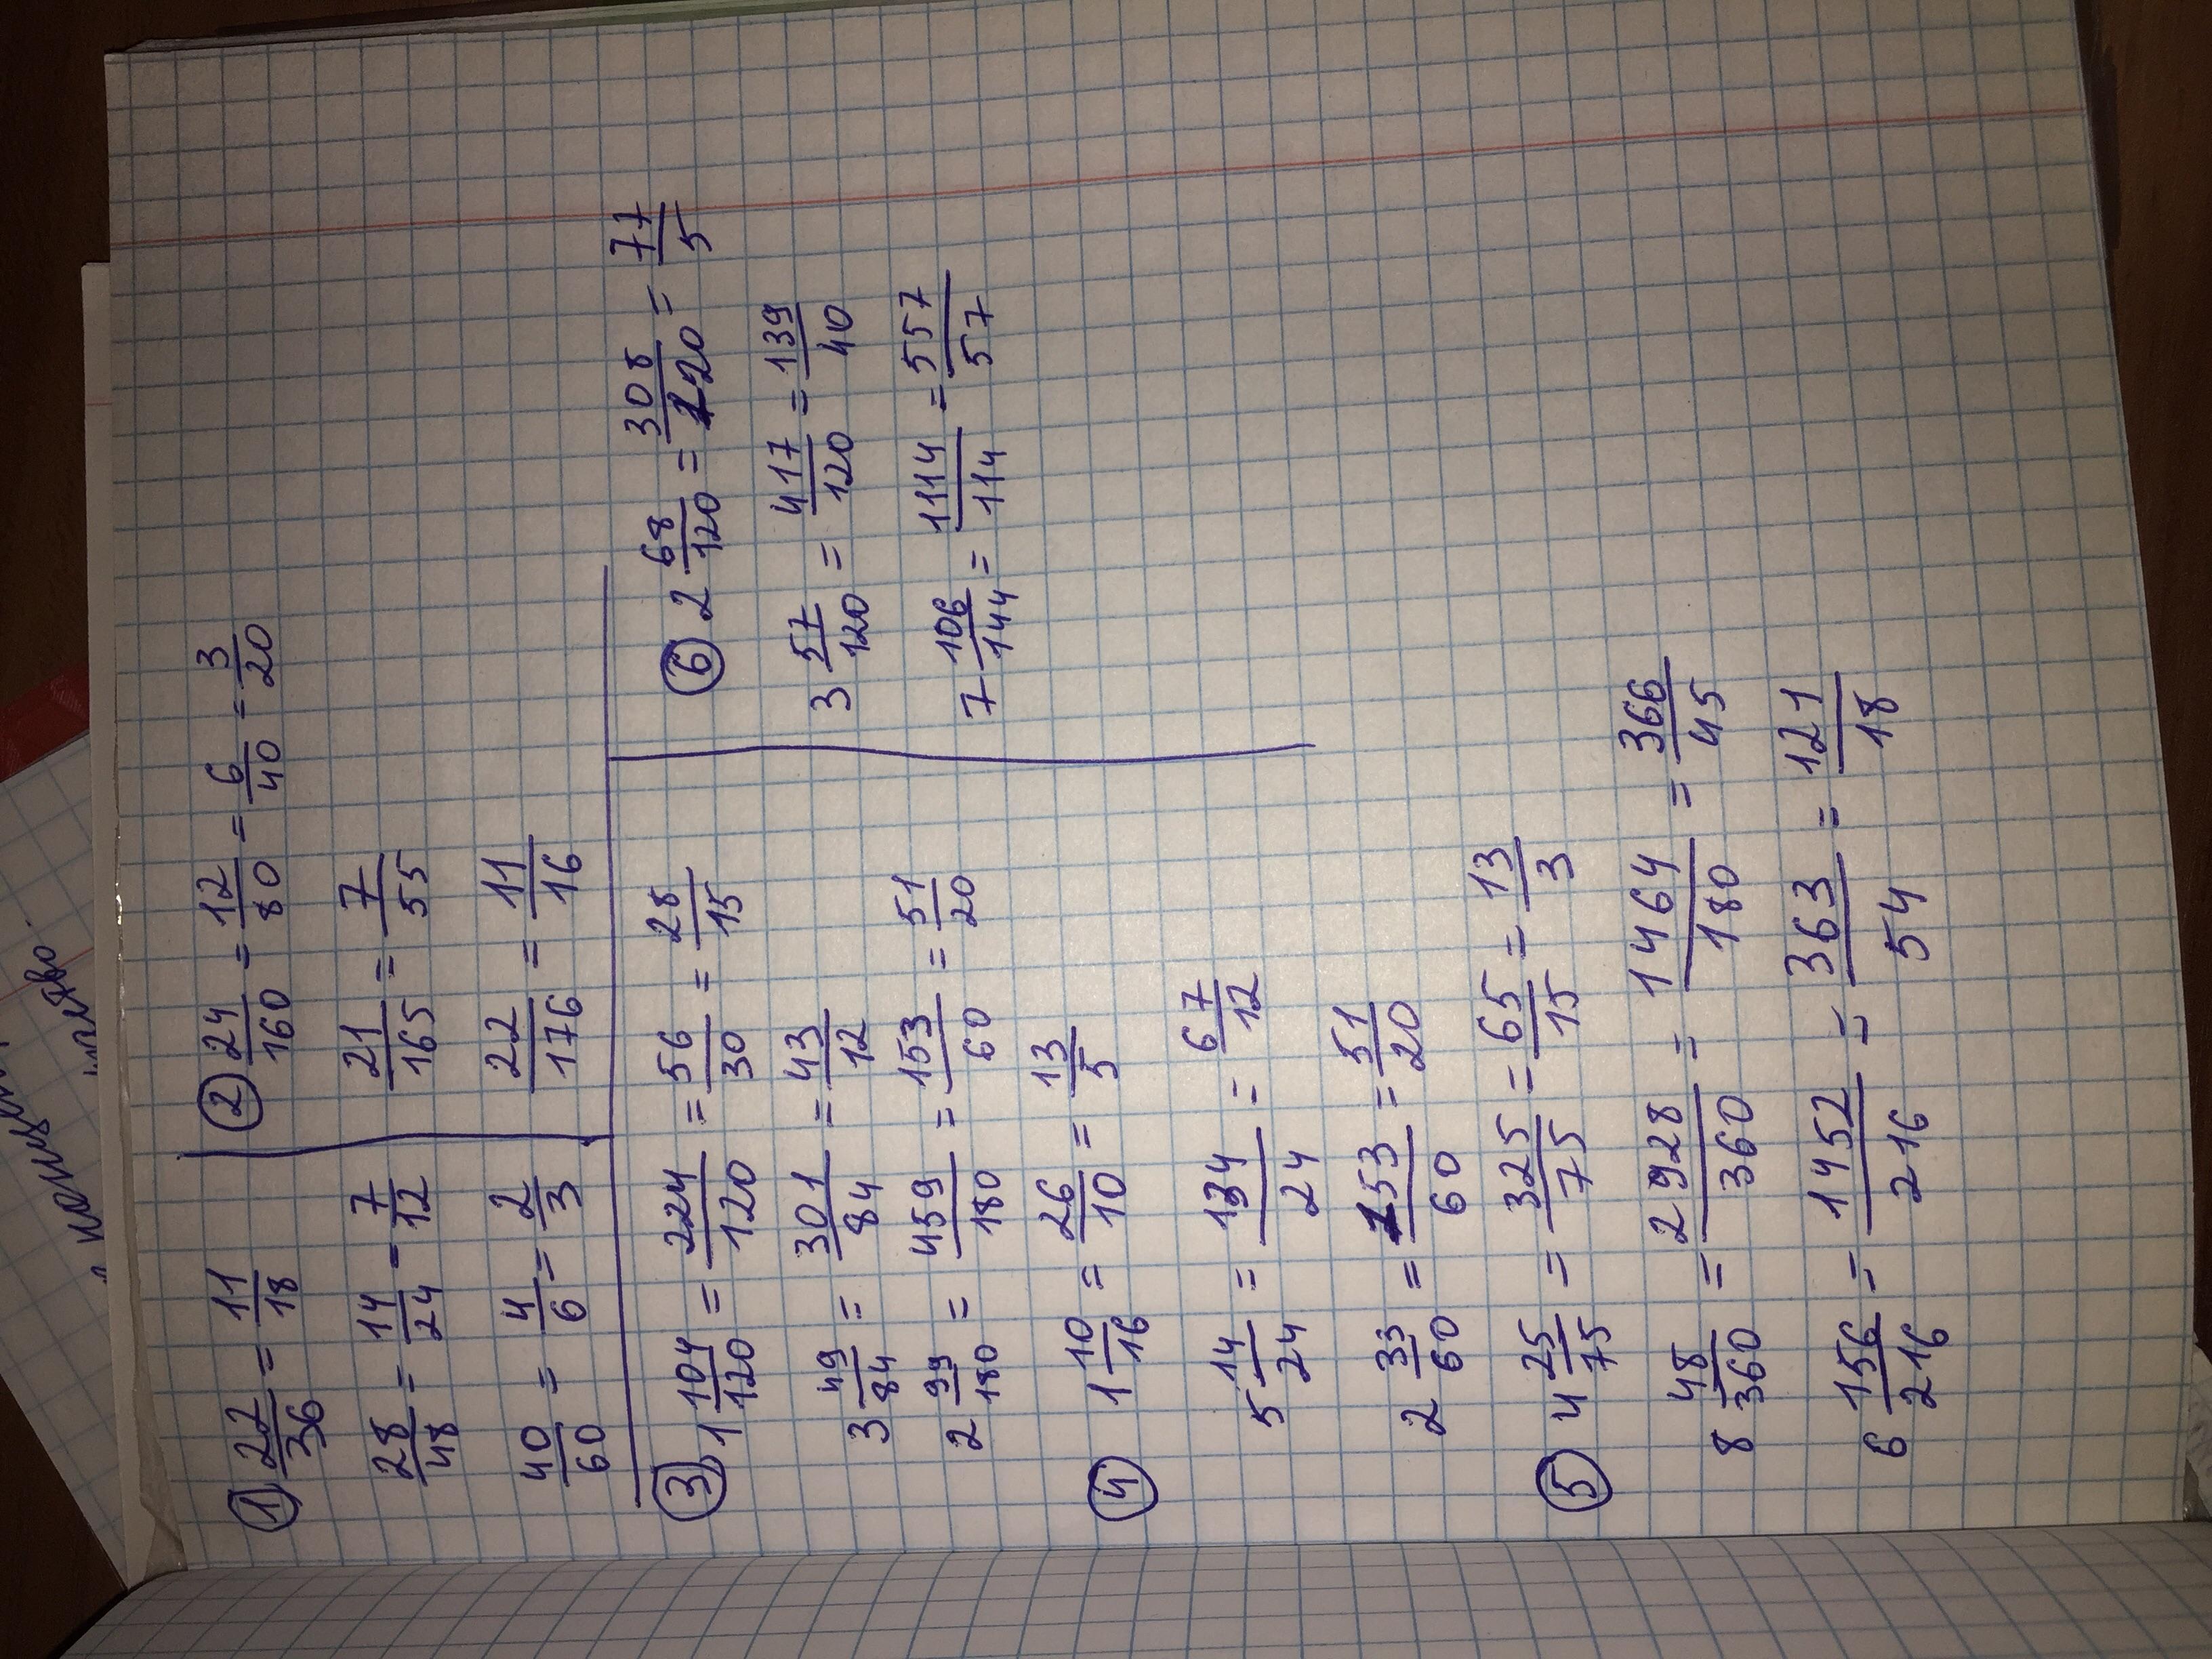 ① 22/36 = 11/18
28/48 = 14/24 = 7/12
40/60 = 4/6 = 2/3
② 24/160 = 12/80 = 6/40 = 3/20
21/165 = 7/55
22/176 = 11/16
③ 1 104/120 = 224/120 = 56/30 = 28/15
3 49/84 = 301/84 = 43/12
2 99/180 = 459/180 = 153/60 = 51/20
④ 1 10/16 = 26/10 = 13/5
5 14/24 = 134/24 = 67/12
2 33/60 = 153/60 = 51/20
⑤ 4 25/75 = 325/75 = 65/15 = 13/3
8 48/360 = 2928/360 = 1464/180 = 366/45
6 156/216 = 1452/216 = 363/54 = 121/18
⑥ 2 68/120 = 308/120 = 77/5
3 57/120 = 417/120 = 139/40
7 106/144 = 1114/114 = 557/57